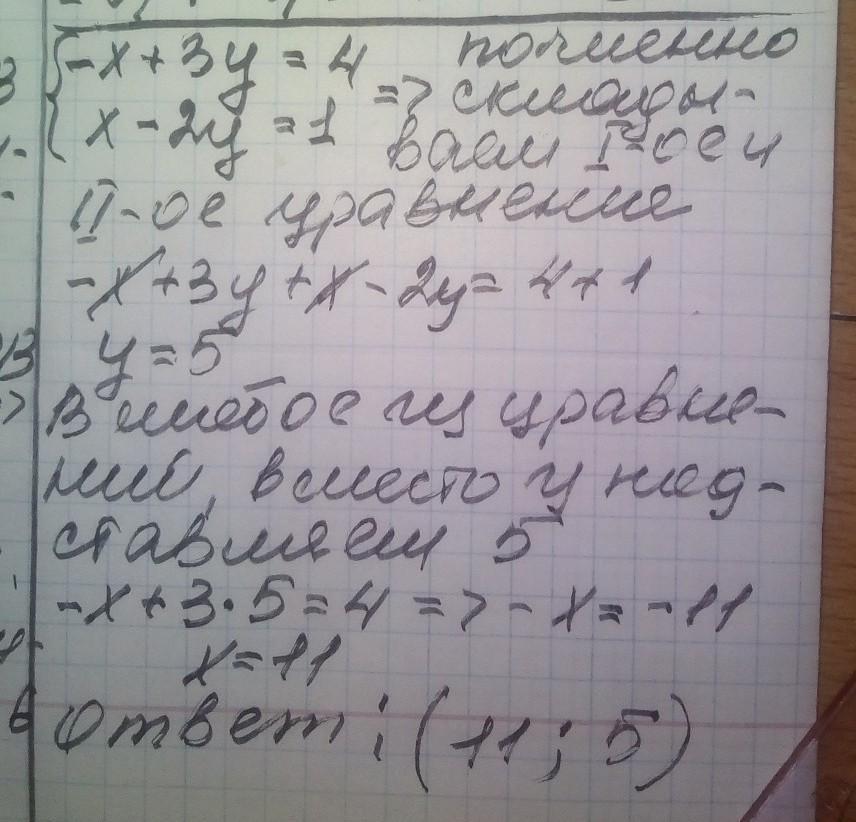 -x + 3y = 4 почленно
x - 2y = 1 => склады-
ваем I-ое и
II-ое уравнение
-x + 3y + x - 2y = 4 + 1
y = 5
В любое из уравне-
ний, вместо y под-
ставляем 5
-x + 3·5 = 4 => -x = -11
x = 11
Ответ: (11; 5)